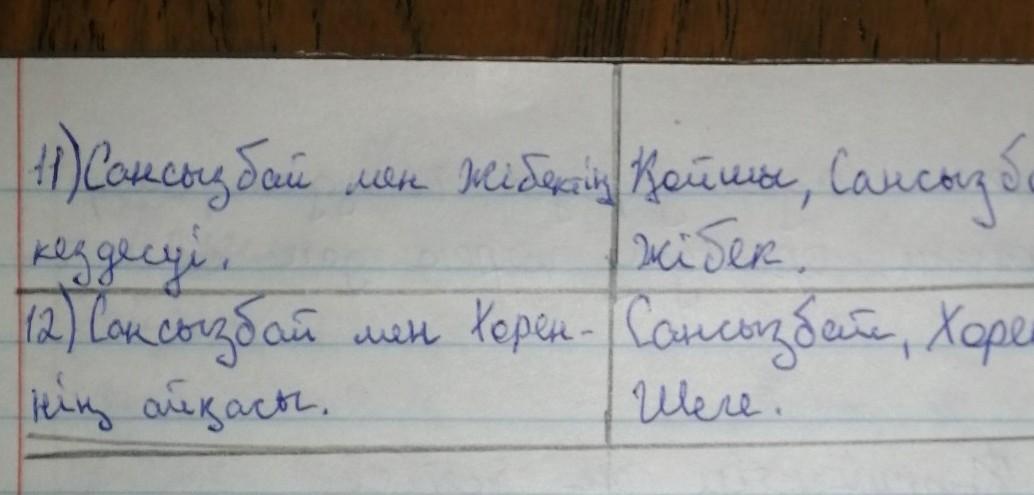 11) Сансызбай мен Жібектің
кездесуі.
Қойшы, Сансызб
Жібек.
12) Сансызбай мен Хорен-
нің айқасы.
Сансызбай, Хоре
Шеге.